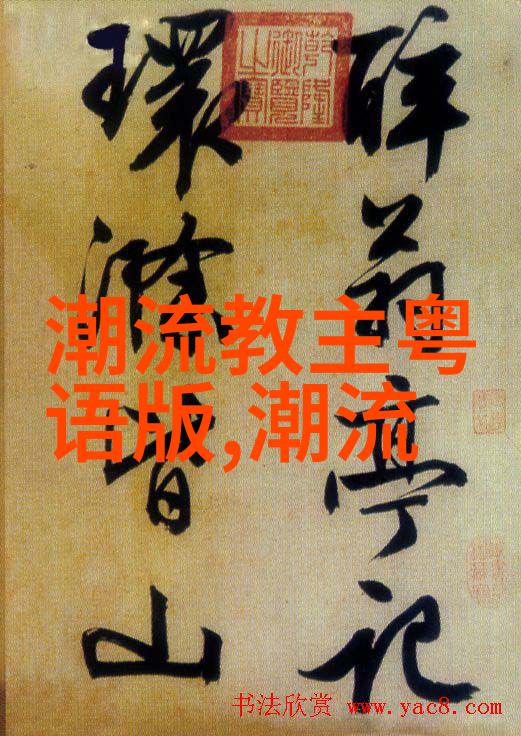 醉翁亭記
環滁皆山
乾隆
御覽
之寶
潮流教主粤
语版,潮流
书法欣赏 www.yac8.com